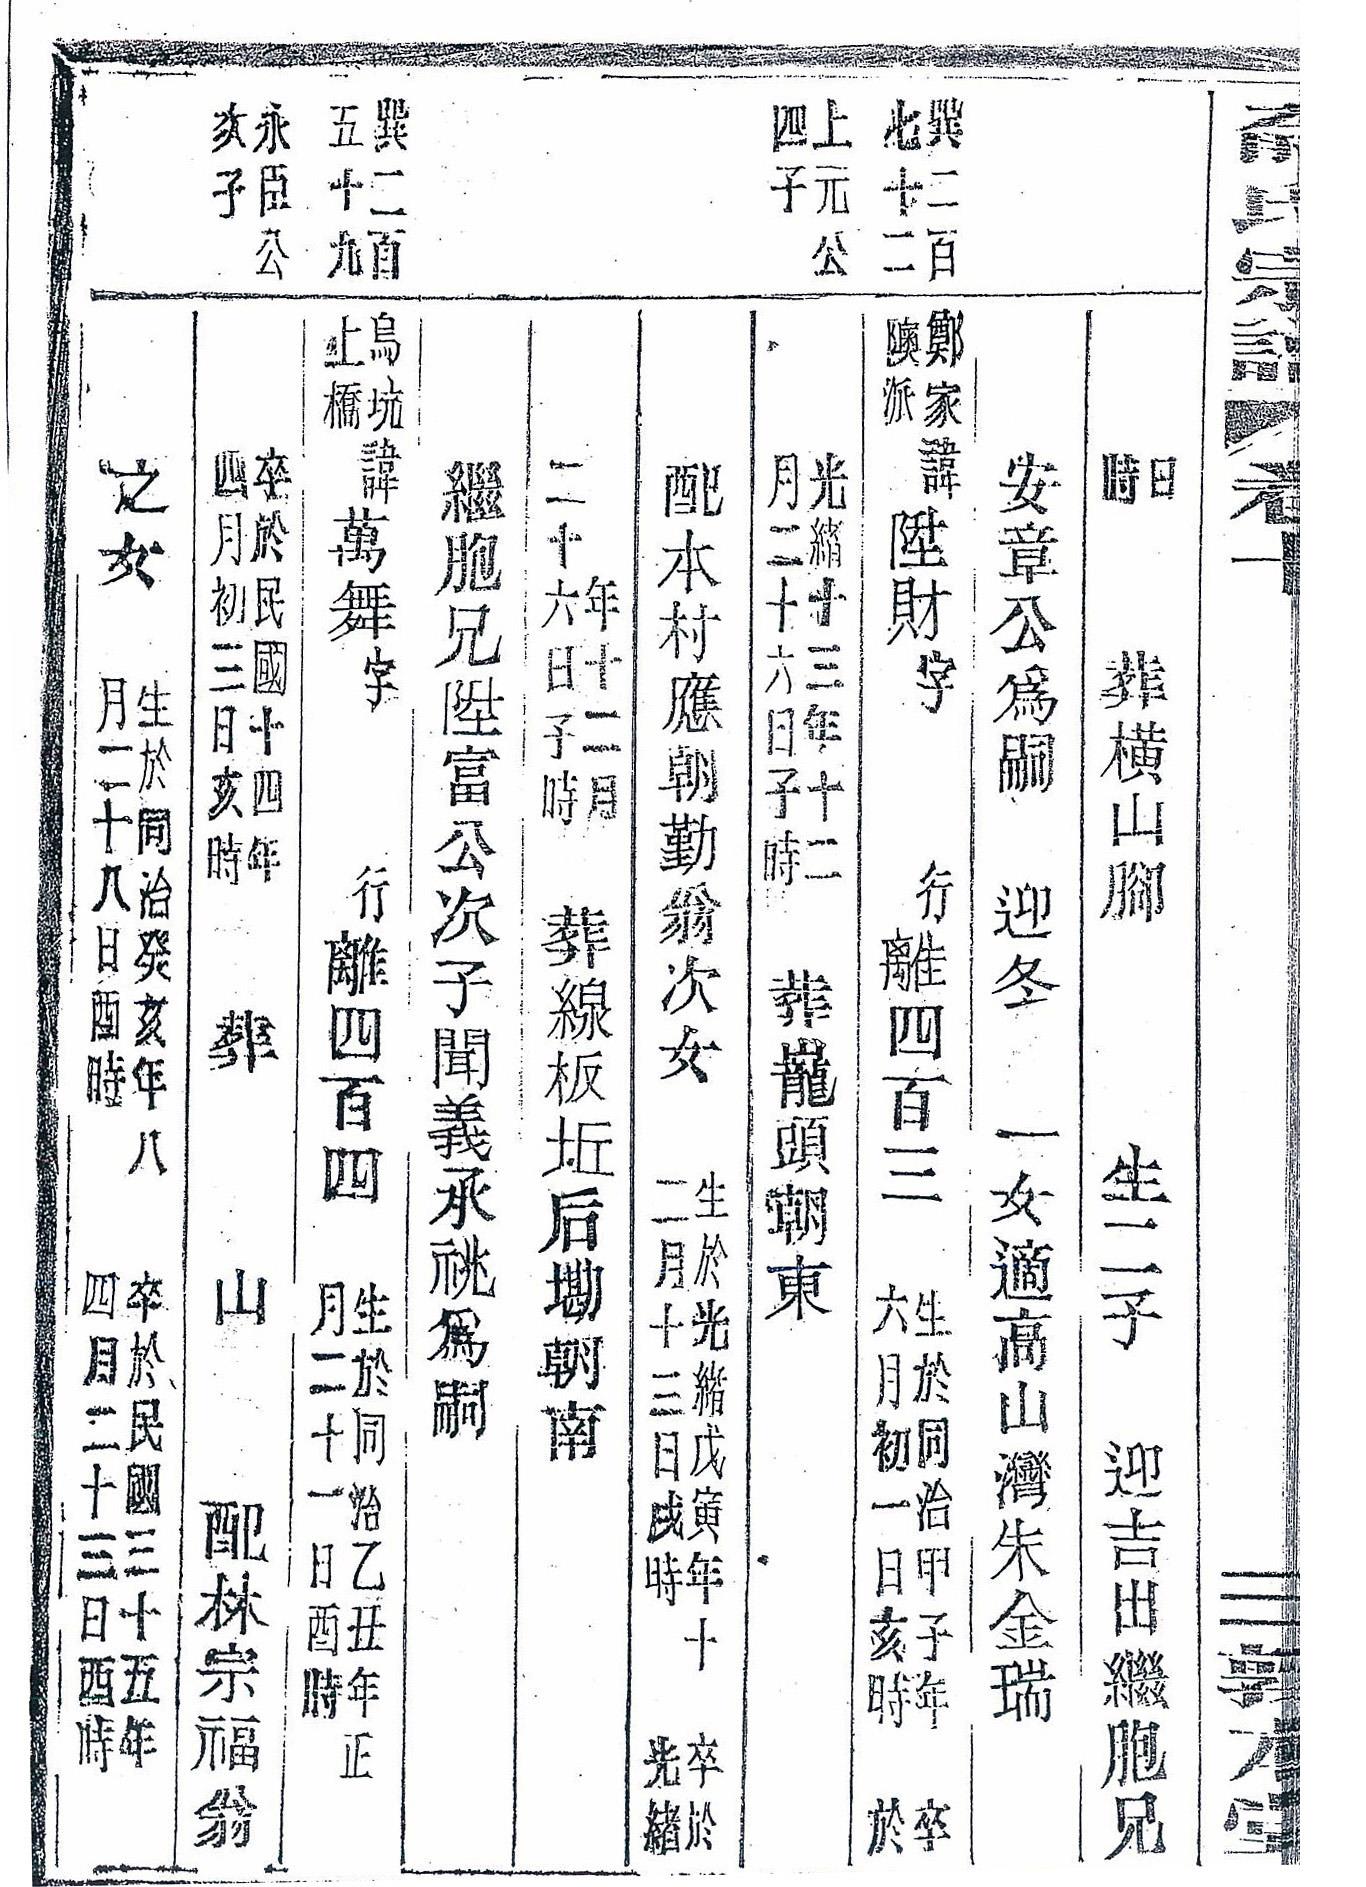 卷十一
三 敦本堂
日時 葬橫山腳 生二子 迎吉出繼胞兄
安章公為嗣 迎冬 一女適高山灣朱金瑞
巽二百七十二
鄭家陳派 諱陞財 字 行離四百三 生於同治甲子年六月初一日亥時 卒於
上元公四子
光緒十三年十二月二十六日子時 葬巃頭朝東
配本村應朝勤翁次女 生於光緒戊寅年十二月十三日戌時 卒於光緒
年十二月二十六日子時 葬線板坵后墈朝南
繼胞兄陞富公次子聞義承祧為嗣
巽二百五十九
烏坑上橋 諱萬舞 字 行離四百四 生於同治乙丑年正月二十一日酉時
永臣公亥子
卒於民國十四年四月初三日亥時 葬 山 配林宗福翁
之女 生於同治癸亥年八月二十八日酉時 卒於民國三十五年四月二十三日酉時